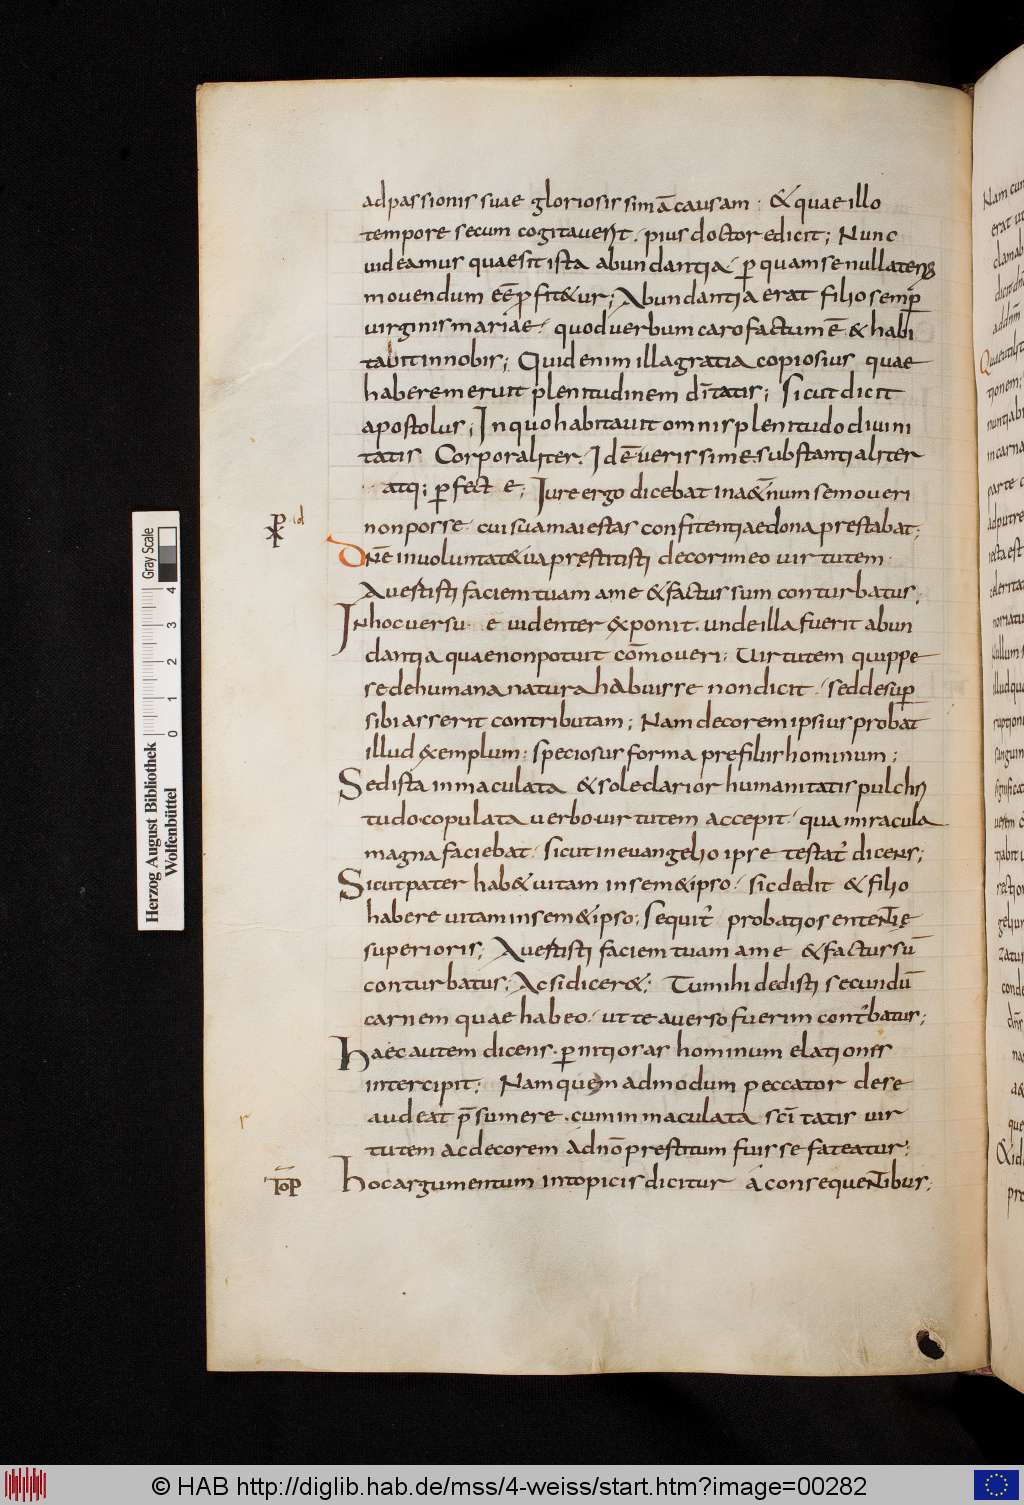 ad passionis suae gloriosissimā causam; & quae illo
tempore secum cogitaverit. pius doctor edicit; Nunc
uideamus quae sit ista abundantia p̄ quam se nullatenus
mouendum eē p̄fit&ur; Abundantia erat filio semp̄
uirginis mariae. quod uerbum caro factum ē & habi
tauit in nobis; Quid enim illa gratia copiosius quae
habere meruit plenitudinem dītatis; Sicut dicit
apostolus; In quo habitauit omnis plenitudo diuini
tatis Corporaliter. Id ē uerissime substantialiter
atq; p̄fectę; Iure ergo dicebat in a&̄num se moueri
non posse. cui sua maiestas confitentiae dona prestabat;
Dn̄e in uoluntate tua prestitisti decori meo uirtutem.
Auertisti faciem tuam a me & factus sum conturbatus;
In hoc uersu euidenter exponit. unde illa fuerit abun
dantia quae non potuit cōmoueri; Uirtutem quippe
se de humana natura habuisse non dicit. sed desup̄
sibi asserit contributam; Nam decorem ipsius probat
illud exemplum; speciosus forma pre filiis hominum;
Sed ista inmaculata & sole clarior humanitatis pulchri
tudo copulata uerbo uirtutem accepit. qua miracula
magna faciebat. sicut in euangelio ipse testat' dicens;
Sicut pater hab& uitam in sem&ipso. sic dedit & filio
habere uitam in sem&ipso; Sequit' probatio sententię
superioris; Auertisti faciem tuam a me & factus sū
conturbatus; Ac si dicer&; Tu mihi dedisti secundū
carnem quae habeo. ut te auerso fuerim cont'batus;
Haec autem dicens. p̄nitiosas hominum elationes
intercipit; Nam quem admodum peccator de se
audeat p̄sumere. cum inmaculata scī tatis uir
tutem ac decorem ad nō prestitum fuisse fateatur;
Hoc argumentum in topicis dicitur á consequentibus;
id
Top
r
Gray Scale
0 1 2 3 4
Herzog August Bibliothek
Wolfenbüttel
© HAB http://diglib.hab.de/mss/4-weiss/start.htm?image=00282